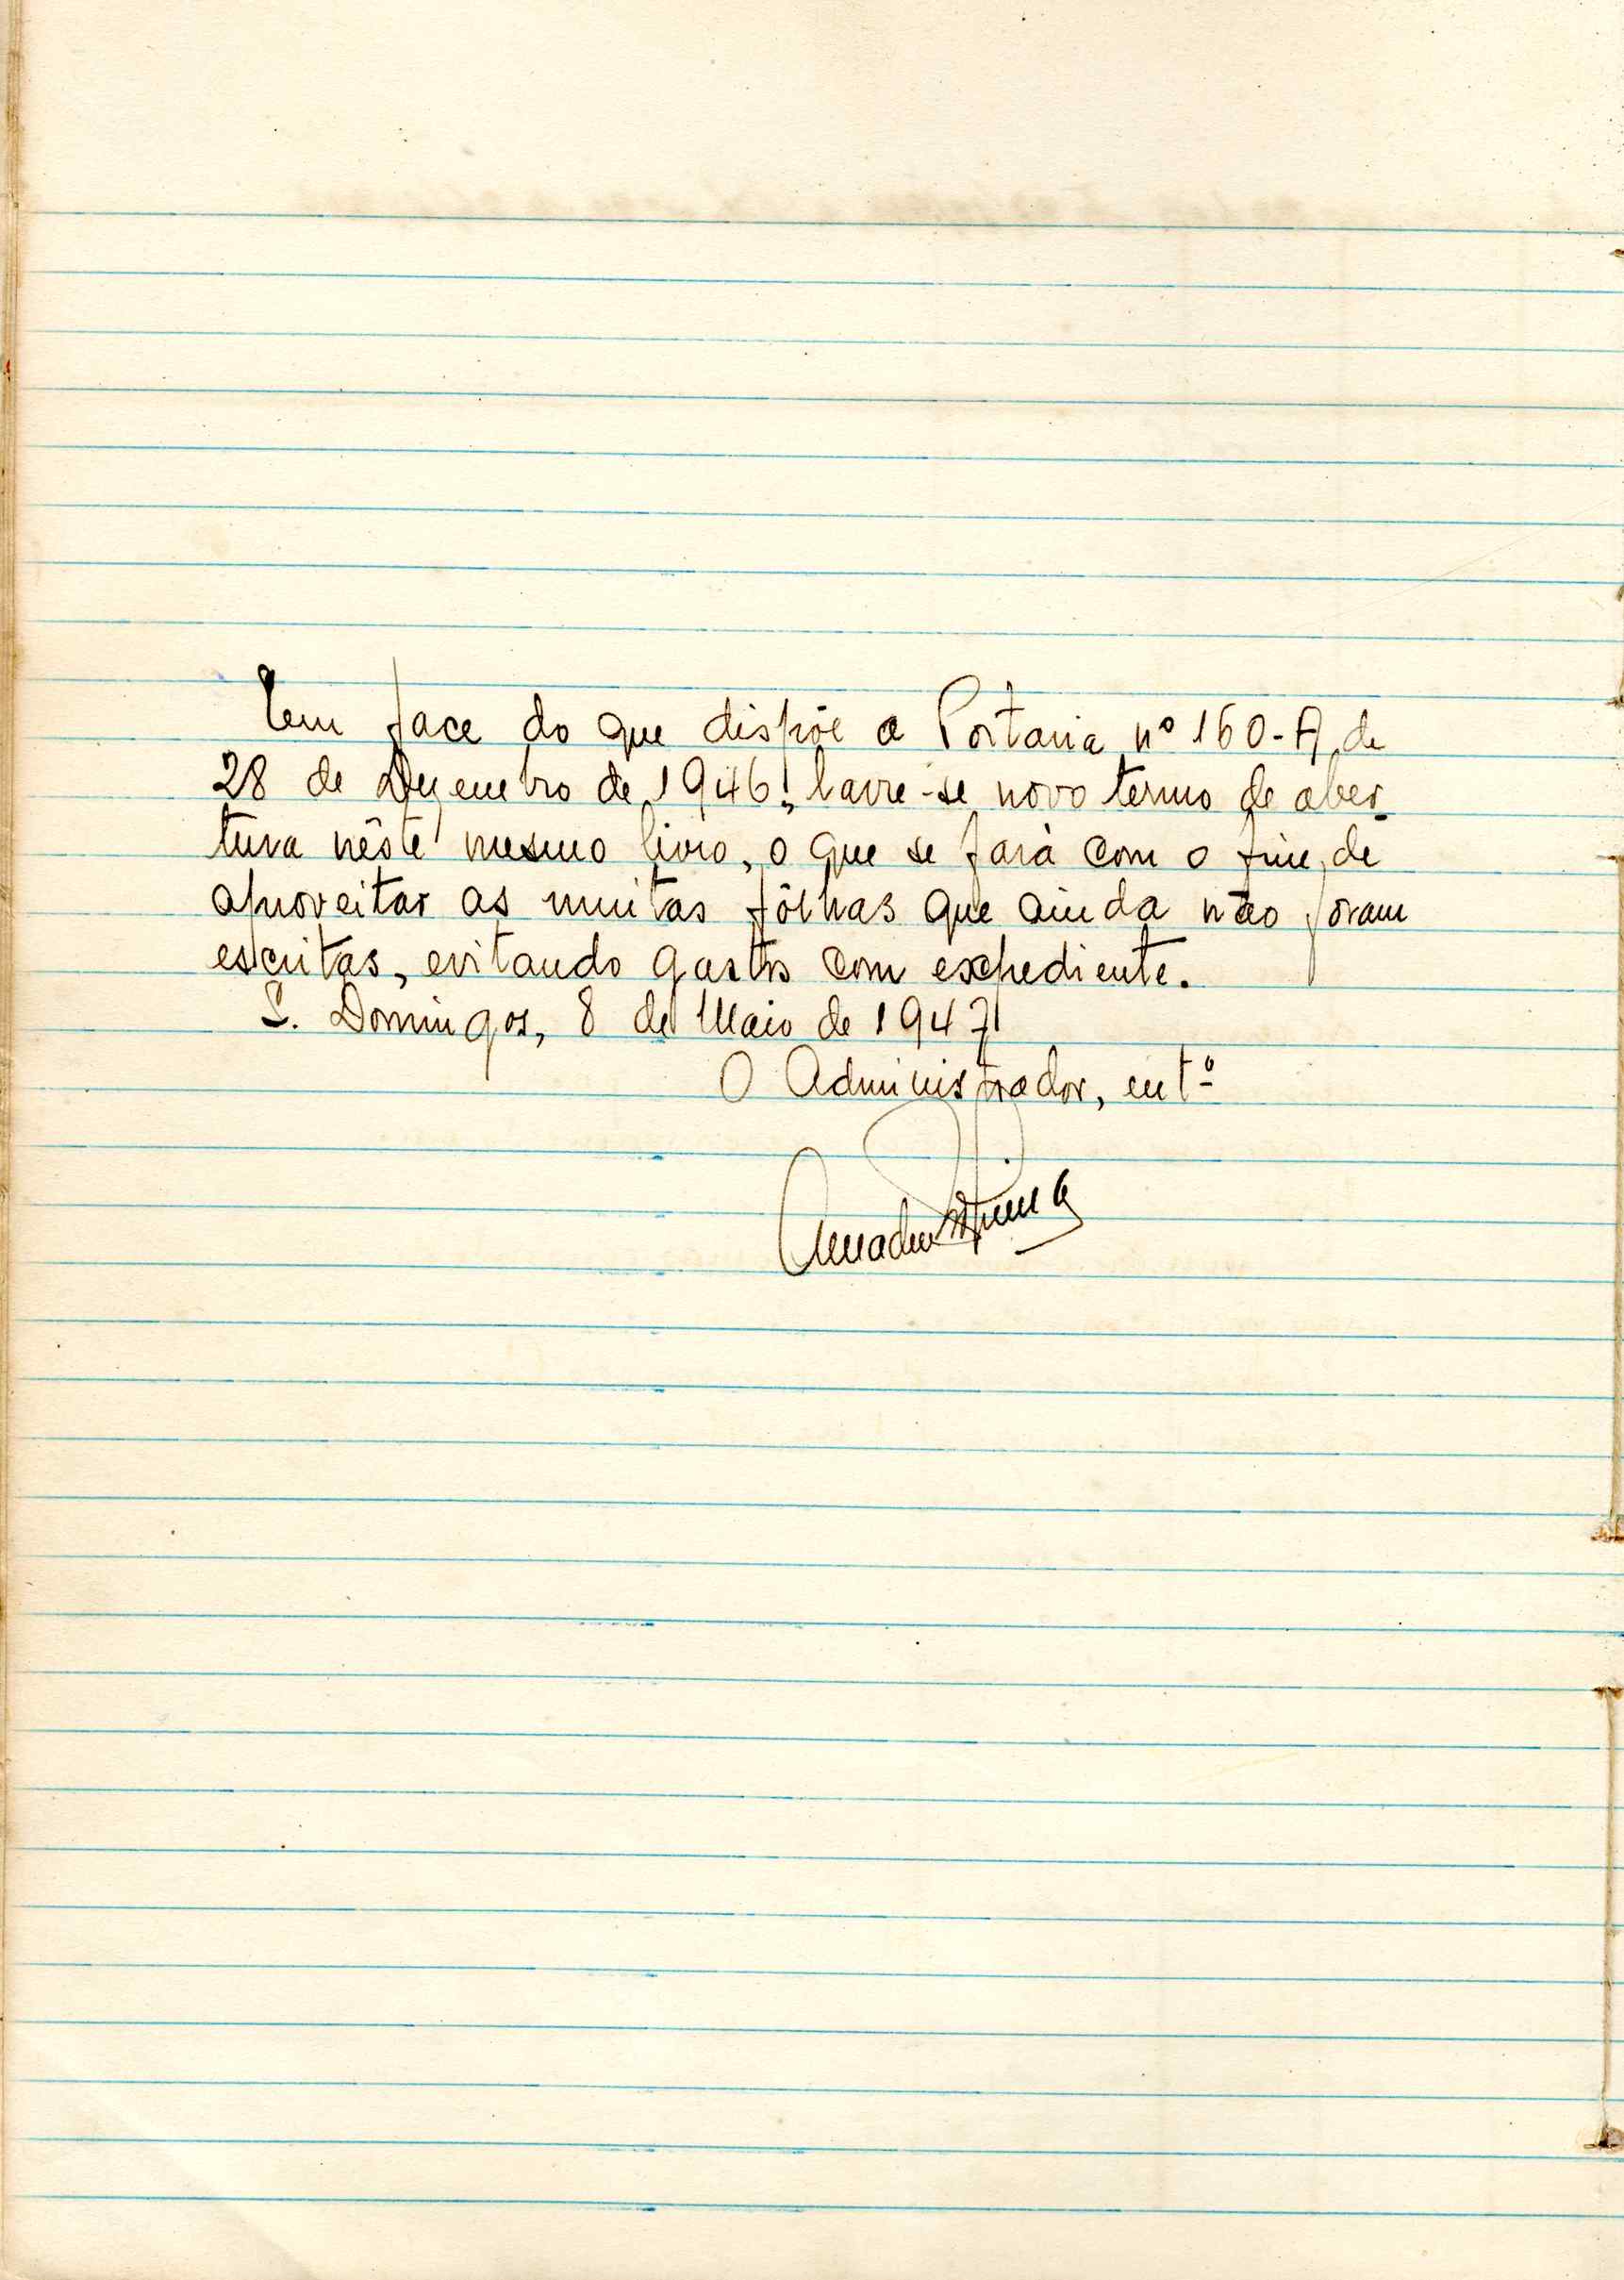 Em face do que dispõe a Portaria nº 160-A, de
28 de Dezembro de 1946, lavre-se novo termo de aber-
tura nêste mesmo livro, o que se fará com o fim de
aproveitar as muitas fôlhas que ainda não foram
escritas, evitando gastos com expediente.
S. Domingos, 8 de Maio de 1947
O Administrador, entº
Amadeu